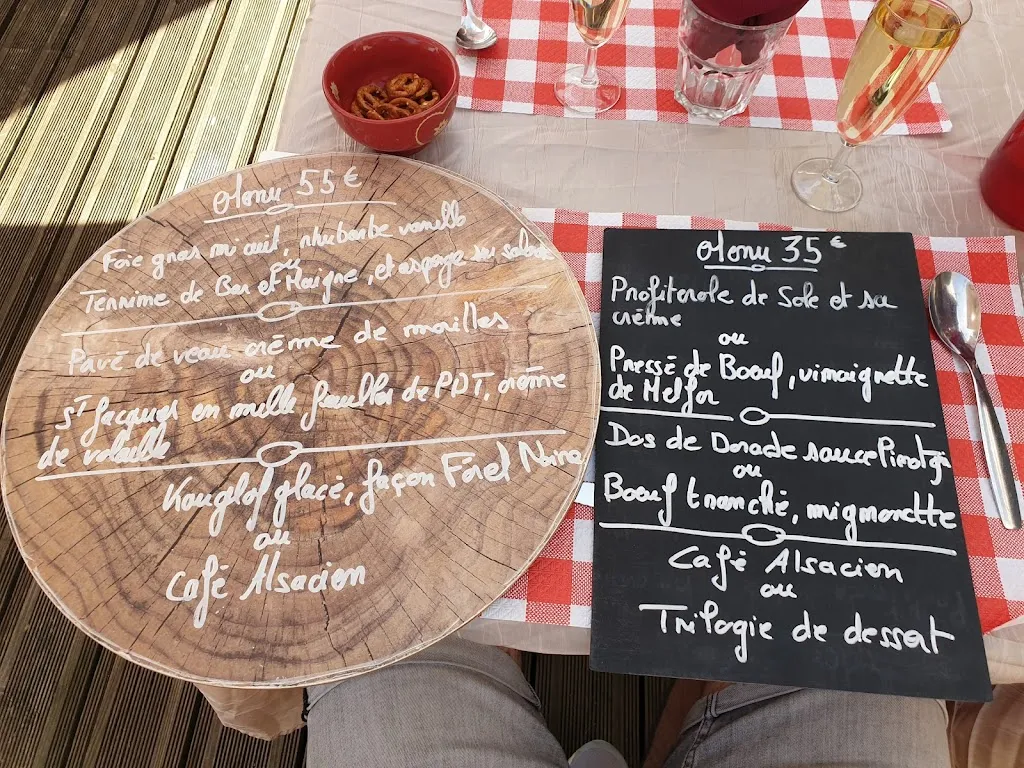 Menu 55€
Foie gras mi cuit, rhubarbe vanille
ou
Terrine de Bar et Maigre, et asperge en salade
Pavé de veau crème de morilles
ou
St Jacques en mille feuilles de PDT, crème
de volaille
Kouglof glacé, façon Foret Noire
ou
Café Alsacien
Menu 35€
Profiterole de Sole et sa
crème
ou
Pressé de Boeuf, vinaigrette
de Melfor
Dos de Dorade sauce Pinot gris
ou
Boeuf tranché, mignonette
Café Alsacien
ou
Trilogie de dessert